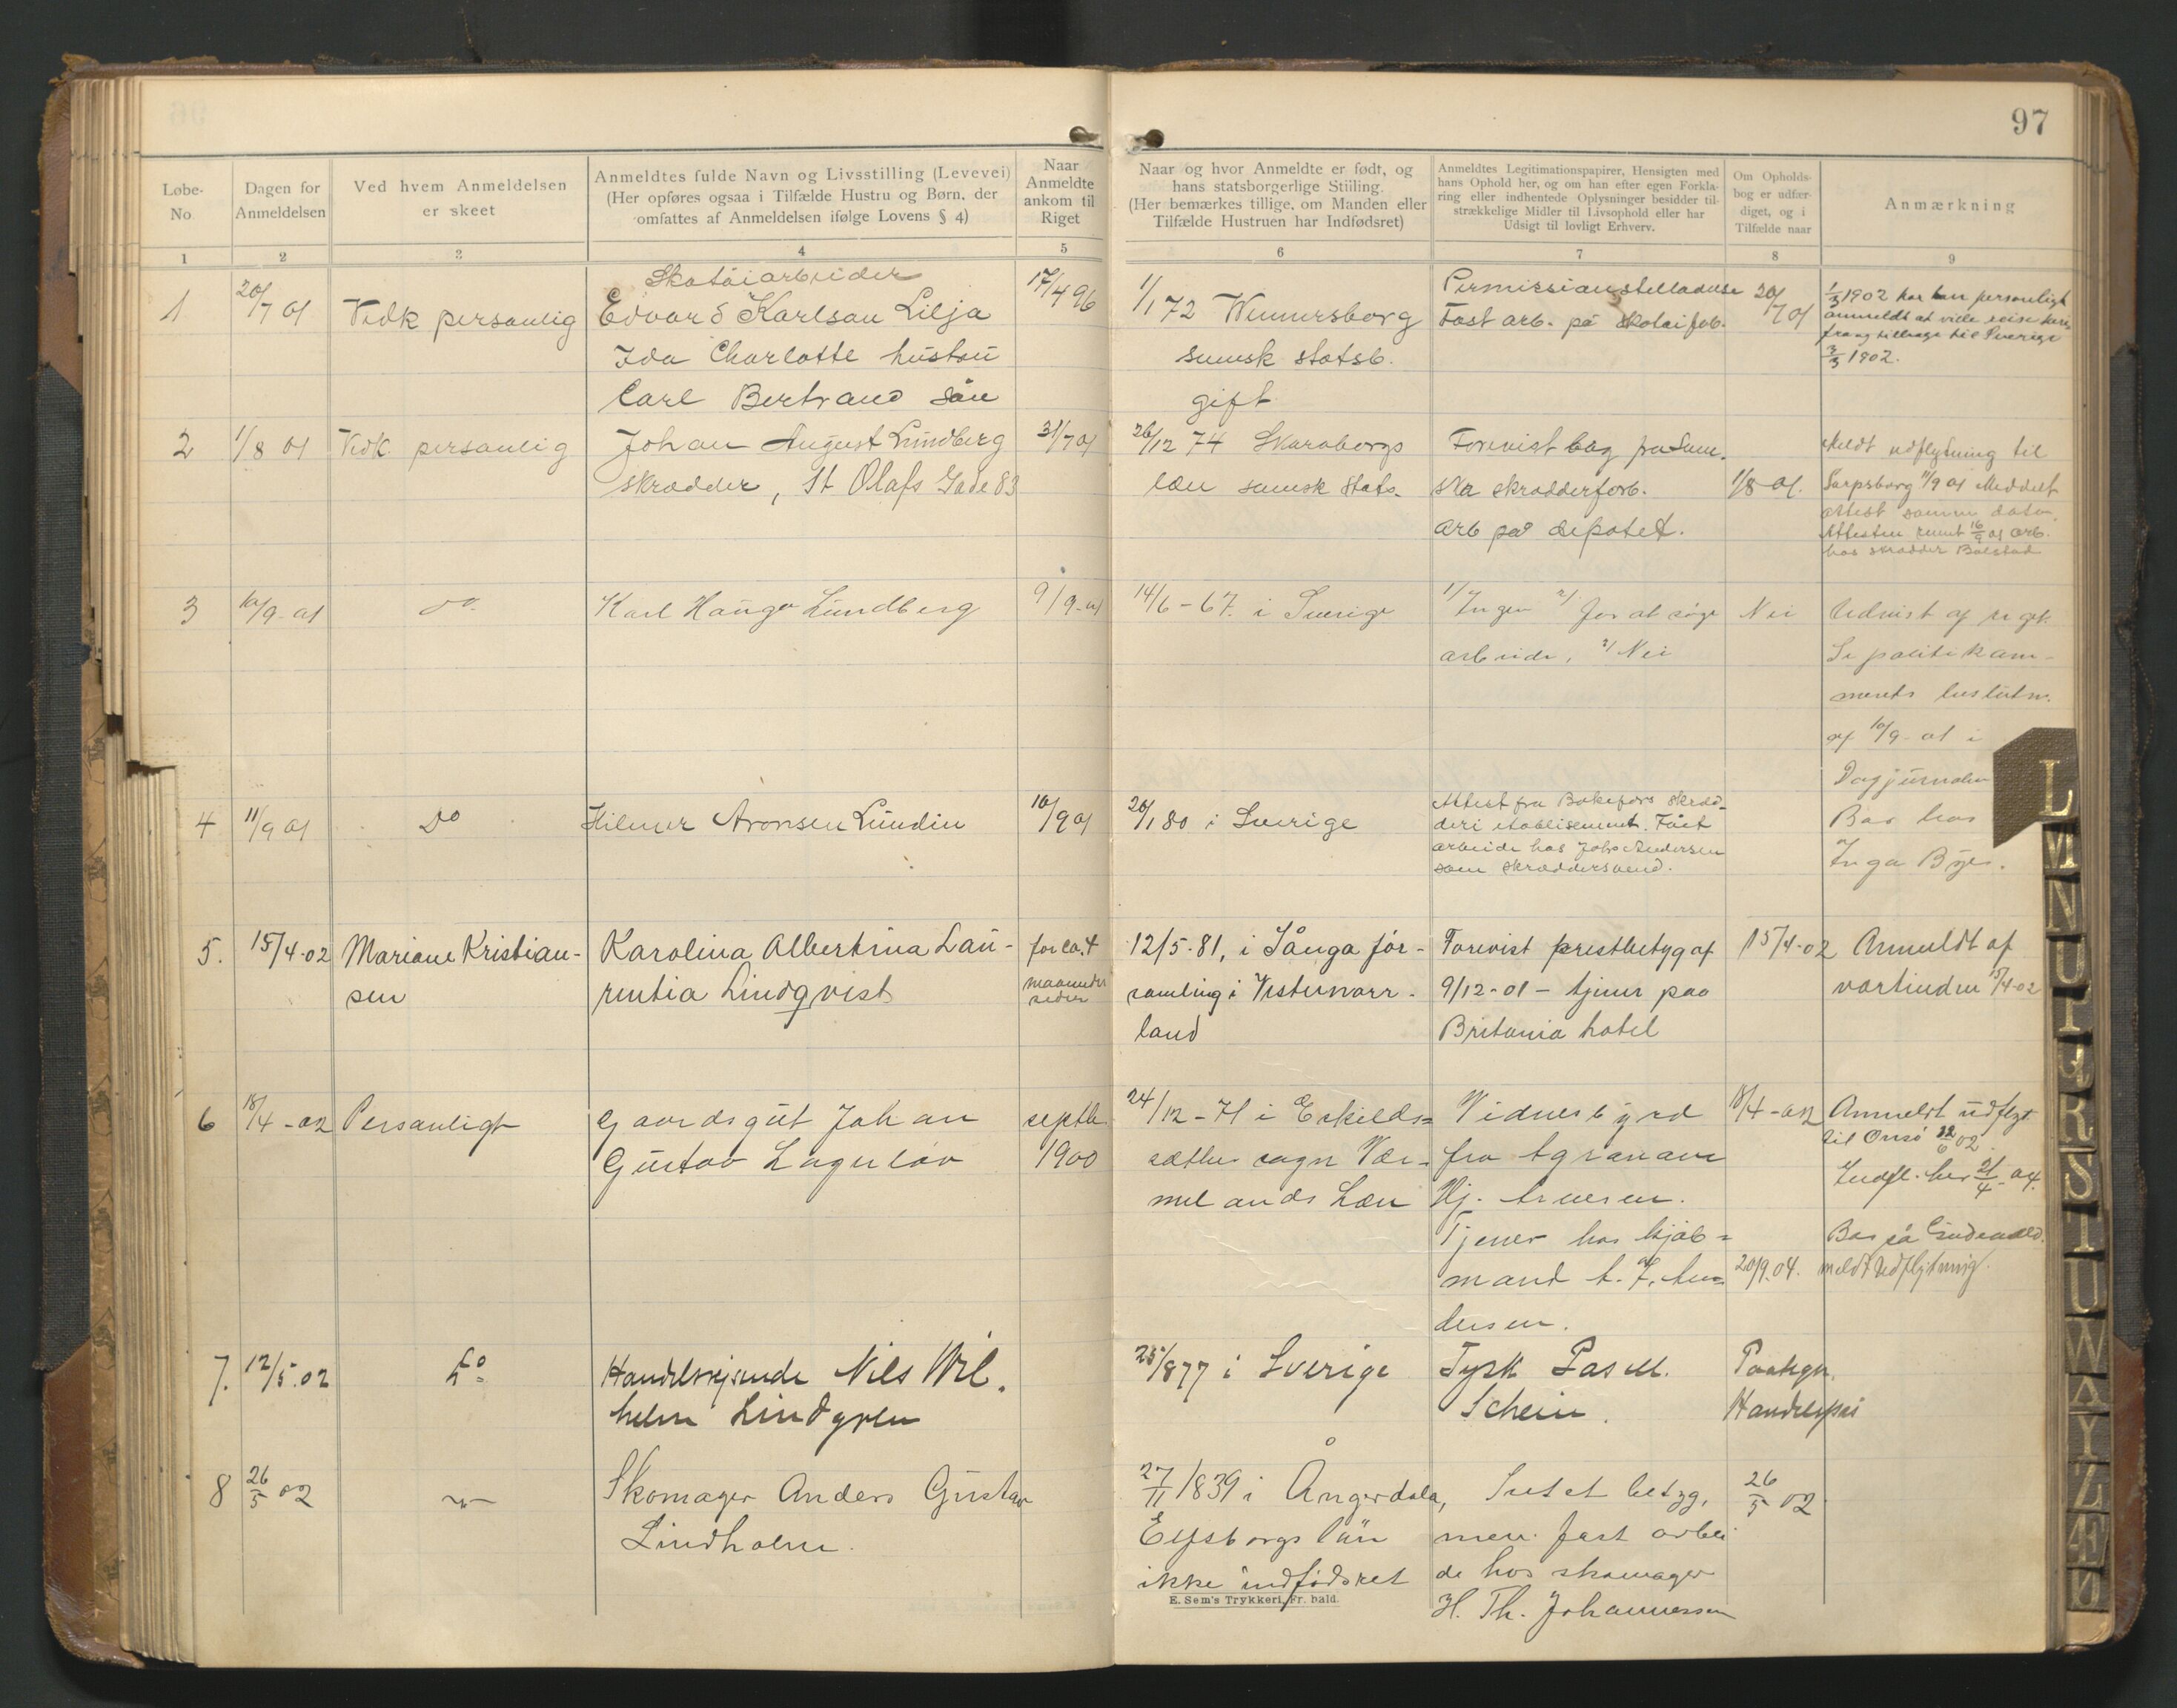 97
Løbe-
No
Dagen for
Anmeldelsen
Ved hvem Anmeldelsen
er skeet
Anmeldtes fulde Navn og Livsstilling (Levevei)
(Her opføres ogsaa i Tilfælde Hustru og Børn, der
omfattes af Anmeldelsen ifølge Lovens § 4)
Naar
Anmeldte
ankom til
Riget
Naar og hvor Anmeldte er født, og
hans statsborgerlige Stiiling.
(Her bemærkes tillige, om Manden eller
Tilfælde Hustruen har Indfødsret)
Anmeldtes Legitimationspapirer, Hensigten med
hans Ophold her, og om han efter egen Forkla-
ring eller indhentede Oplysninger besidder til-
strækkelige Midler til Livsophold eller har
Udsigt til lovligt Erhverv.
Om Opholds-
bog er udfær-
diget, og i
Tilfælde naar
Anmærkning
1 2 3 4 5 6 7 8 9
1
20/7 01
Vedk personlig
Skotøiarbeider
Edvard Karlson Lilja
Ida Charlotte hustru
Carl Bertrand søn
17/4 96
1/1 72 Wenersborg
svensk statsb.
gift
Permissionstilladelse
Fast arb. på skotøifab.
20/7 01
1/3 1902 har han personligt
anmeldt at ville reise her
fra og tilbage til Sverige
3/3 1902.
2
1/8 01
Vedk. personlig
Johan August Lundberg
skrædder, St Olafs Gade 83
31/7 01
26/12 74 Skaraborgs
læn svensk stats-
Forevist bog fra Sven-
ska skrædderforb.
arb på depotet.
1/8-01.
Meldt udflytning til
Sarpsborg 11/9 01 Meddelt
attest samme dato
Attesten 16/9 01 arb.
hos skrædder Bolstad
3
10/9-01
do
Karl Hauge Lundberg
9/9-01
14/6-67. i Sverige
1/ Ingen 2/ for at søge
arbeide, 3/ Nei
Nei
Udvist af riget.
Se politikam-
merets beslutn.
af 10/9-01 i
Dagjurnalen
4
11/9 01
Do
Hilmer Aronsen Lundin
10/9 01
20/1 80 i Sverige
Attest fra Bokefors skræd-
deri etablisement. Fået
arbeide hos Johs Andersen
som skræddersvend.
Bor hos
Inga Bye.
5.
15/4-02
Mariane Kristian-
sen
Karolina Albertina Lau-
rentia Lindqvist
for ca. 4
maaneder
siden
12/5-81, i Sånga för-
samling i Vesternorr-
land
Forevist prestbetyg af
9/12-01 - tjener paa
Britania hotel
15/4-02
Anmeldt af
vertinden 15/4-02
6
18/4-02
Personligt
Gaardsgut Johan
Gustav Lagerløv
septbr
1900
24/12-71 i Eskilds=
sæther sogn Vær-
melands Læn
Vidnesbyrd
fra Agronom
Hj. Arnesen.
Tjener hos kjøb=
mand A. J. An=
dersen.
18/4-02
20/9.04.
Anmeldt udflyt
til Onsø
Indfl. her 21/4-04.
Bor på
meldt Udflytning.
7.
12/5.02
Do
Handelsrejsende Nils Wil.
helm Lindgren
25/8 77 i Sverige
Tysk Pas M.
Schein.
Paategn.
Handelspas
8
26/5 02
Skomager Anders Gustav
Lindholm.
27/11 1839 i Ångerdala,
Elfsborgs län
ikke indfødsret
Intet betyg,
men fast arbei
de hos skomager
H. Th. Johannessen
26/5 02
E. Sem's Trykkeri, Fr. hald.
L
M
N
O
P
Q
R
S
T
U
W
A
Y
Z
Æ
Ø